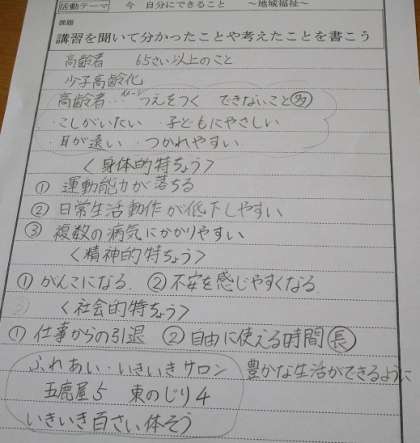 活動テーマ 今 自分にできること ～地域福祉～
課題
講習を聞いて分かったことや考えたことを書こう
高齢者 65さい以上のこと
少子高齢化
高齢者… イメージ つえをつく できないこと多
・こしがいたい ・子どもにやさしい
・耳が遠い ・つかれやすい
＜身体的特ちょう＞
① 運動能力が落ちる
② 日常生活動作が低下しやすい
③ 複数の病気にかかりやすい
＜精神的特ちょう＞
① がんこになる ② 不安を感じやすくなる
＜社会的特ちょう＞
① 仕事からの引退 ② 自由に使える時間長
ふれあい・いきいきサロン 豊かな生活ができるように
五鹿屋5 東のじり4
いきいき百さい体そう